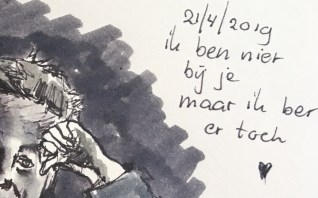 21/4/2019
ik ben niet
bij je
maar ik ben
er toch